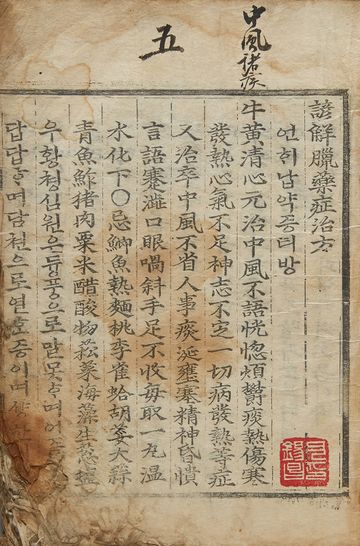 中風諸疾
五
諺解臘藥症治方
언히납약증티방
牛黃淸心元治中風不語恍惚煩鬱痰熱傷寒
發熱心氣不足神志不定一切病發熱等症
又治卒中風不省人事痰涎壅塞精神昏憒
言語蹇澁口眼喎斜手足不收每取一丸溫
水化下○忌鯽魚熱麵桃李雀蛤胡荽大蒜
靑魚鮓猪肉粟米醋酸物菘菜海藻生葱
우황쳥심원은듕풍으로말못ᄒᆞ며어
답답ᄒᆞ며담쳔으로연호증이며